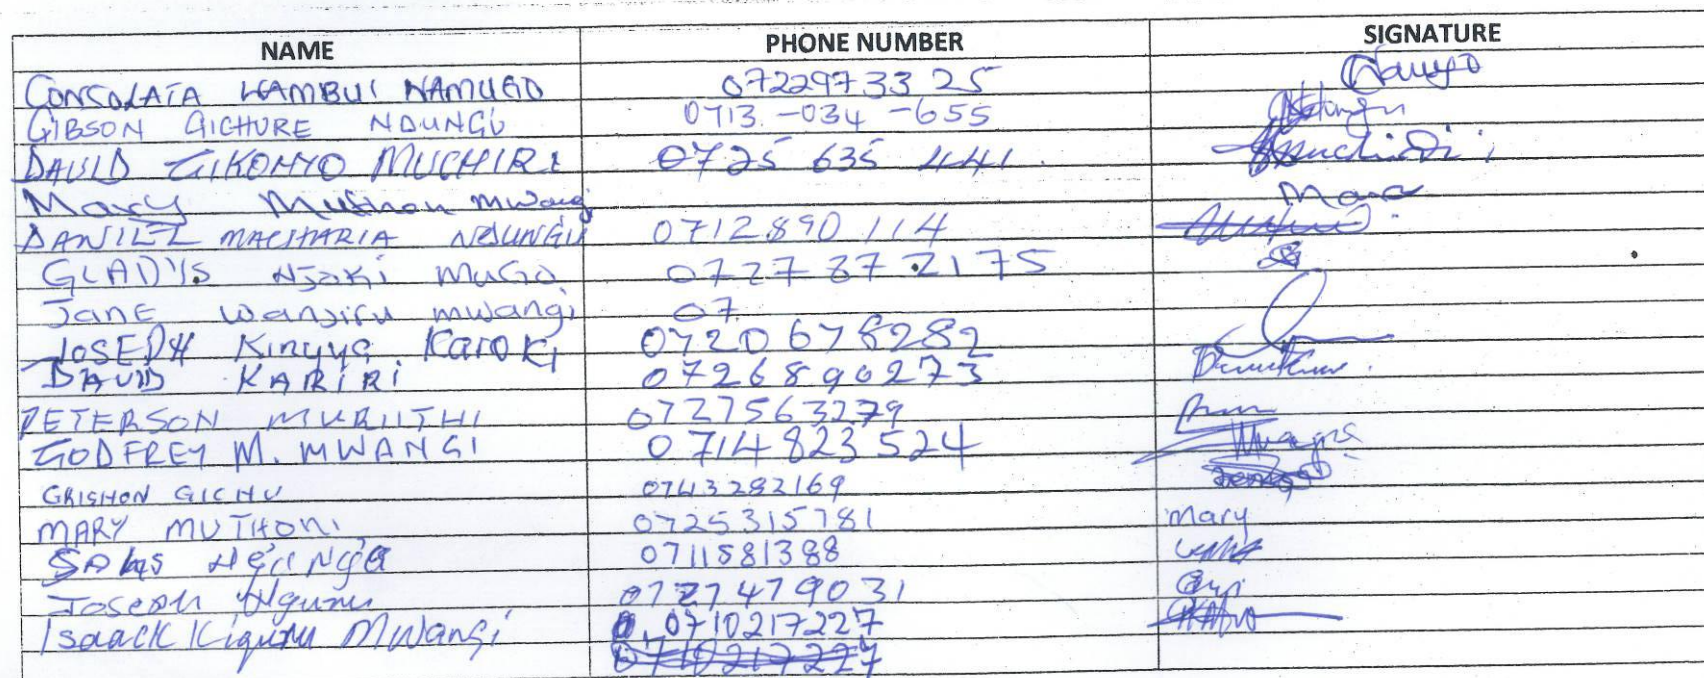 NAME PHONE NUMBER SIGNATURE
CONSOLATA WAMBUI NAMUGO 0722973325
GIBSON GICHURE NDUNGU 0713-034-655
DAVID GIKONYO MUCHIRI 0725 635 441
Mary Muthoni Mwangi Mara
DANIEL MACHARIA NDUNGU 0712890114
GLADYS NJOKI MUGO 0727872175
JANE wanjiru mwangi 07
JOSEPH Kinyua Karoki 0720678282
DAVID KARIRI 0726890273
PETERSON MURIITHI 0727563279
GODFREY M. MWANGI 0714823524 Mwangi
GRISHON GICHU 0743282169
MARY MUTHONI 0725315781 mary
0711581388
Joseph Nguru 0727479031
Isaack Kiguru Mwangi 0710217227
0710217227